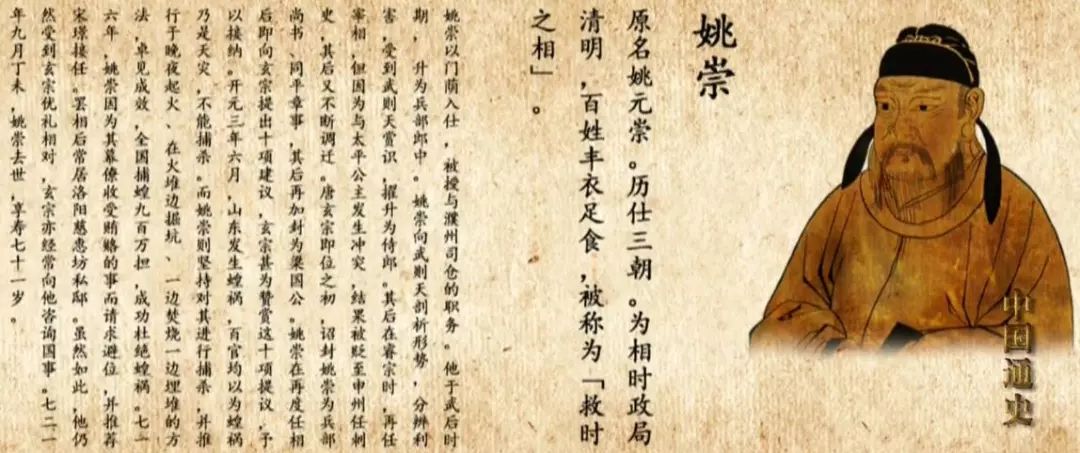 姚崇
原名姚元崇。历仕三朝。为相时政局
清明，百姓丰衣足食，被称为「救时
之相」。
姚崇以门荫入仕，被授与濮州司仓的职务。他于武后时
期，升为兵部郎中。姚崇向武则天剖析形势，分辨利
害，受到武则天赏识，擢升为侍郎。其后在睿宗时，再任
宰相，但因为与太平公主发生冲突，结果被贬至申州任刺
史，其后又不断调迁。唐玄宗即位之初，诏封姚崇为兵部
尚书、同平章事，其后再加封为梁国公。姚崇在再度任相
后即向玄宗提出十项建议，玄宗甚为赞赏这十项提议，予
以接纳。开元三年六月，山东发生蝗祸，百官均以为蝗祸
乃是天灾，不能捕杀。而姚崇则坚持对其进行捕杀，并推
行于晚夜起火、在火堆边掘坑、一边焚烧一边埋堆的方
法，卓见成效，全国捕蝗九百万担，成功杜绝蝗祸。七一
六年，姚崇因为其幕僚收受贿赂的事而请求避位，并推荐
宋璟接任。罢相后常居洛阳慈惠坊私邸。虽然如此，他仍
然受到玄宗优礼相对，玄宗亦经常向他咨询国事。七二一
年九月丁未，姚崇去世，享寿七十一岁。
中国通史